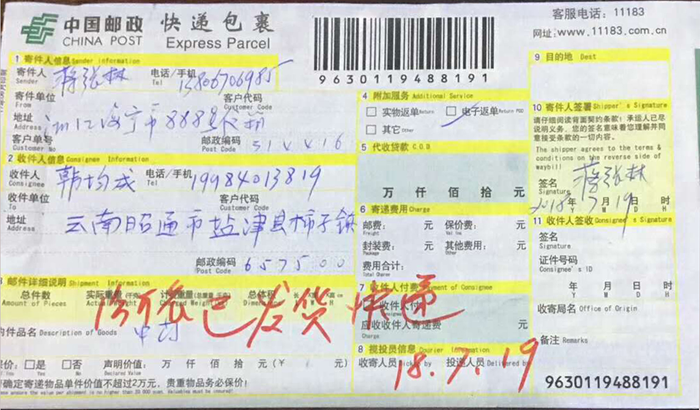 中国邮政 快递包裹
CHINA POST Express Parcel
9630119488191
客服电话：11183
网址：www.11183.com.cn
1 寄件人信息 Sender information
寄件人 Sender 蒋张林 电话/手机 Tel
寄件单位 From 客户代码 Customer Code
地址 Address 浙江海宁市888号
客户单号 Customer No 邮政编码 Post Code 314416
2 收件人信息 Consignee Information
收件人 Consignee 韩均成 电话/手机 Tel 19984013819
收件单位 To 客户代码 Customer Code
地址 Address 云南昭通市盐津县柿子镇
邮政编码 Post Code 657500
3 邮件详细说明 Shipment Information
总件数 Amount of Pieces 实际重量 计费重量 总体积
内件品名 Description of Goods 中药
保价：□是 Yes □否 No 声明价值： 万 仟 佰 拾 元
确定寄递物品单件价值不超过2万元，贵重物品务必保价！
4 附加服务 Additional Service
□实物返单 Return □电子返单 Return POD
□其它 Other
5 代收货款 C.O.D
万 仟 佰 拾 元
6 寄递费用 Charge
邮费： 元 保价费： 元
封装费： 元 其他费用： 元
费用合计： 元
7 收件人付费 Payment of Consignee
收件人付费
应收收件人寄递费 元
8 揽投员信息 Courier Information
收寄人员 投递人员 Delivered by
已发货快递
18.7.19
9 目的地 Dest
10 寄件人签署 Shipper's Signature
请仔细阅读背面契约条款：承运人已尽
说明义务，您的签名意味着您理解并同
意接受条款的一切内容。
The shipper agrees to the terms &
conditions on the reverse side of
waybill
签名 Signature 蒋张林
2018 年 Y 7 月 M 19 日 D
11 收件人签收 Consignee's Signature
签名 Signature
证件号码 Consignee's ID
年 Y 月 M 日 D 时 H
收寄局名 Office of Origin
备注 Remarks
9630119488191